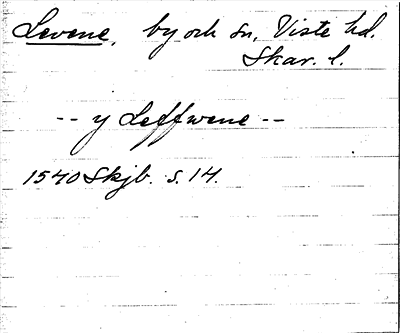 Levene, by och sn, Viste hd.
Skar. l.
-- y Leffwene --
1540 Skjb. s. 14.